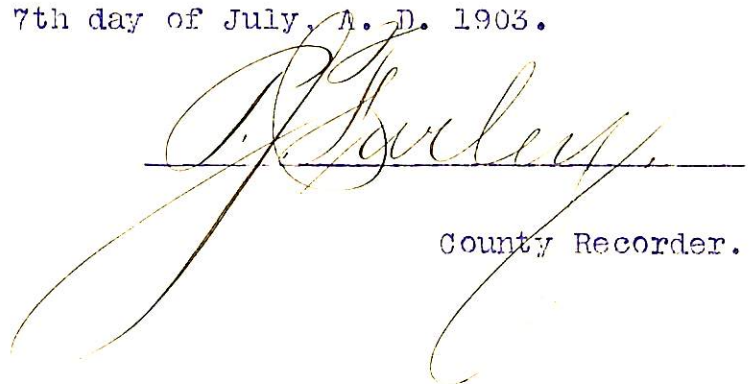 7th day of July, A. D. 1903.
Farley
County Recorder.